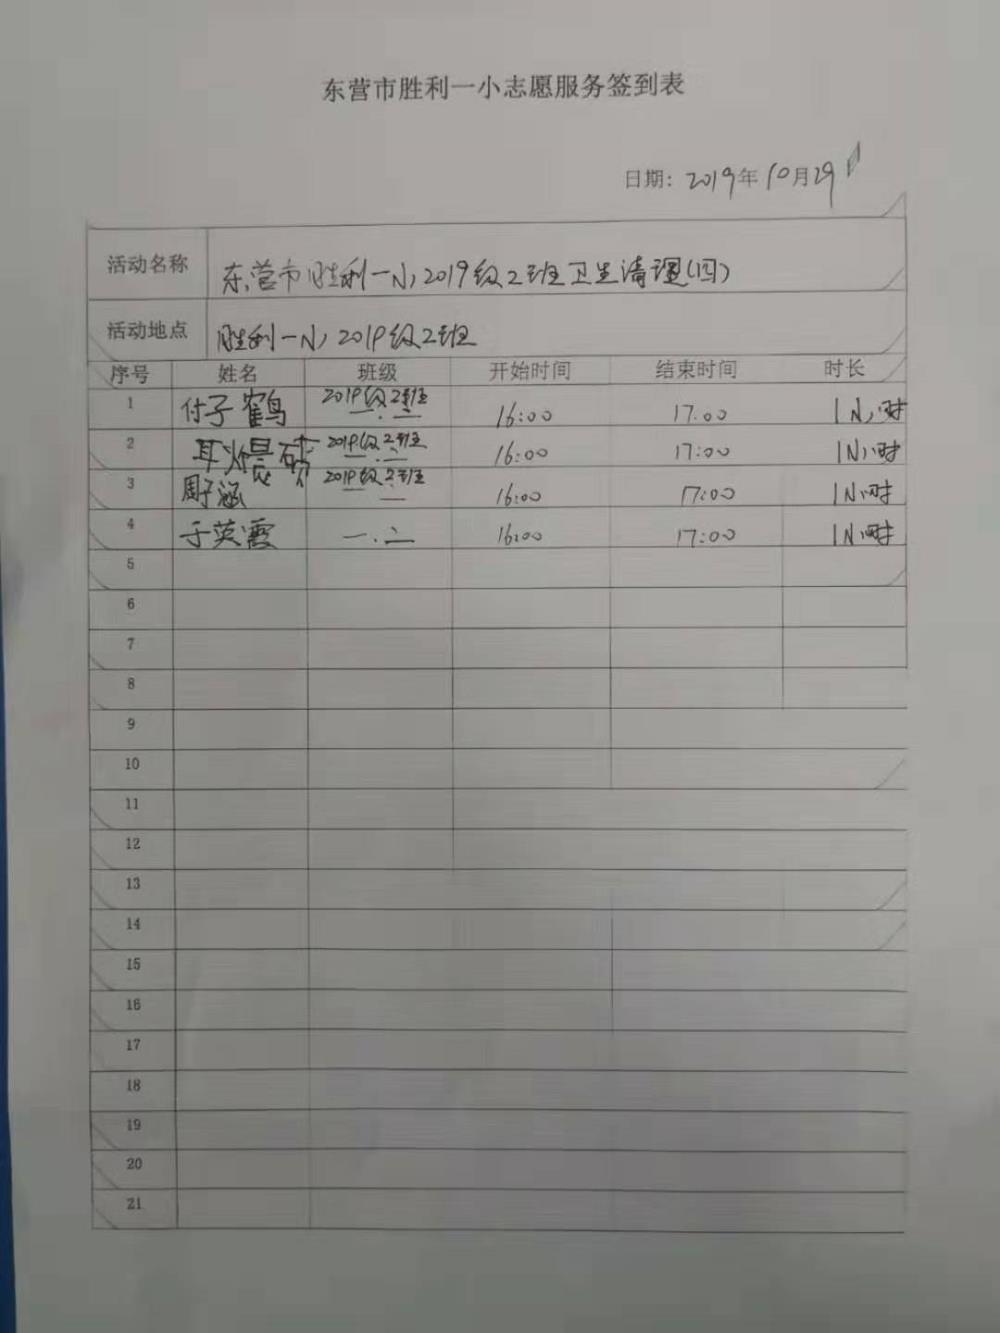 东营市胜利一小志愿服务签到表
日期: 2019年10月29
活动名称 东营市胜利一小2019级2班卫生清理(四)
活动地点 胜利一小2019级2班
序号 姓名 班级 开始时间 结束时间 时长
1 付子鹤 2019级2班 一.二 16:00 17.00 1小时
2 2019级2班 一.二 16:00 17:00 1小时
3 周子涵 2019级2班 一 二 16:00 17:00 1小时
4 于英霞 一.二 16:00 17:00 1小时
5
6
7
8
9
10
11
12
13
14
15
16
17
18
19
20
21